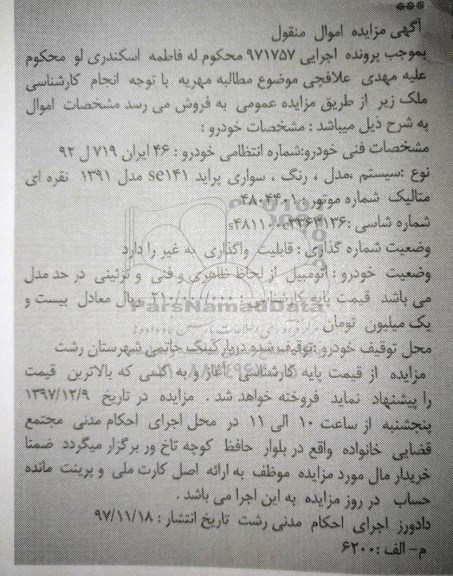 ***
آگهی مزایده اموال منقول
بموجب پرونده اجرایی ۹۷۱۷۵۷ محکوم له فاطمه اسکندری لو محکوم
علیه مهدی علافچی موضوع مطالبه مهریه با توجه انجام کارشناسی
ملک زیر از طریق مزایده عمومی به فروش می رسد مشخصات اموال
به شرح ذیل میباشد : مشخصات خودرو :
مشخصات فنی خودرو:شماره انتظامی خودرو : ۴۶ ایران ۷۱۹ ل ۹۲
نوع :سیستم ،مدل ، رنگ ، سواری پراید se۱۴۱ مدل ۱۳۹۱ نقره ای
متالیک شماره موتور : ۴۸۰۴۴۰۱
شماره شاسی :
وضعیت شماره گذاری : قابلیت واگذاری به غیر را دارد
وضعیت خودرو : اتومبیل از لحاظ ظاهری و فنی و تزئینی در حد مدل
می باشد قیمت پایه کارشناسی : ۲۱۰/۰۰۰/۰۰۰ ریال معادل بیست و
یک میلیون تومان
ParsNamadData
محل توقیف خودرو :توقیف شده در پارکینگ حاتمی شهرستان رشت
مزایده از قیمت پایه کارشناسی آغاز و به کسی که بالاترین قیمت
را پیشنهاد نماید فروخته خواهد شد . مزایده در تاریخ ۱۳۹۷/۱۲/۹
پنجشنبه از ساعت ۱۰ الی ۱۱ در محل اجرای احکام مدنی مجتمع
قضایی خانواده واقع در بلوار حافظ کوچه تاخ ور برگزار میگردد ضمنا
خریدار مال مورد مزایده موظف به ارائه اصل کارت ملی و پرینت مانده
حساب در روز مزایده به این اجرا می باشد .
دادورز اجرای احکام مدنی رشت تاریخ انتشار : ۹۷/۱۱/۱۸
م- الف : ۶۲۰۰